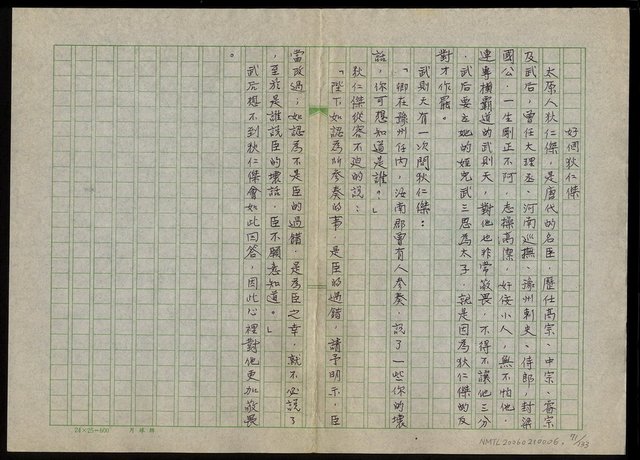 好個狄仁傑
太原人狄仁傑，是唐代的名臣，歷任高宗、中宗、睿宗
及武后，曾任大理丞、河南巡撫、豫州刺史、侍郎，封梁
國公，一生剛正不阿，志操高潔，奸佞小人，無不怕他，
連專橫霸道的武則天，對他也非常敬畏，不得不讓他三分
，武后要立她的姪兒武三思為太子，就是因為狄仁傑的反
對才作罷。
武則天有一次問狄仁傑：
「卿在豫州任內，汝南郡曾有人參奏，說了一些你的壞
話，你可想知道是誰。」
狄仁傑從容不迫的說：
「陛下如認為所參奏的事，是臣的過錯，請予明示，臣
當改過；如認為不是臣的過錯，是為臣之幸，就不必說了
，至於是誰說臣的壞話，臣不願意知道。」
武后想不到狄仁傑會如此回答，因此心裡對他更加敬畏
。
24×25=600
NMTL20060210006. 71/133